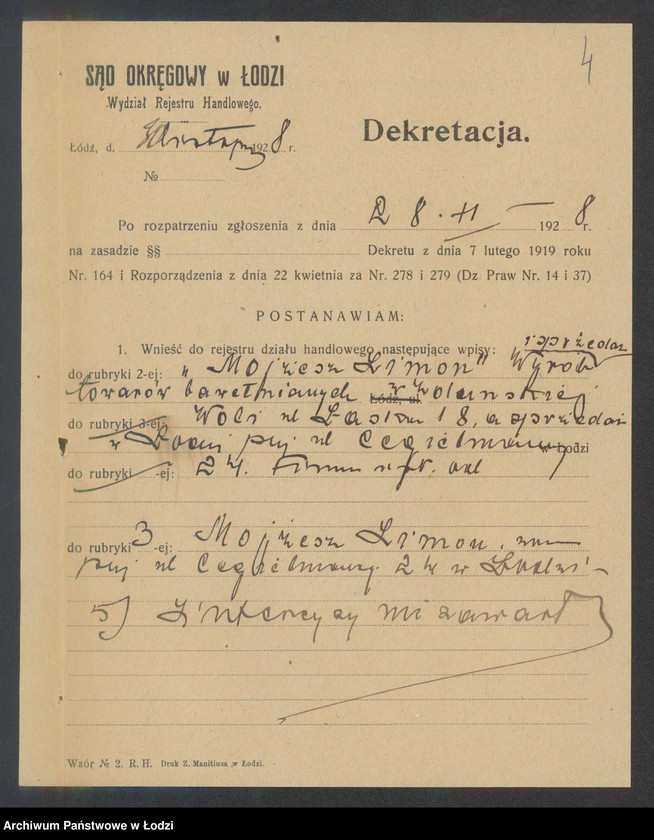 4
SĄD OKRĘGOWY w ŁODZI
Wydział Rejestru Handlowego.
Dekretacja.
Łódź, d. 1928 r.
№
Po rozpatrzeniu zgłoszenia z dnia 28. XI 1928 r.
na zasadzie §§ Dekretu z dnia 7 lutego 1919 roku
Nr. 164 i Rozporządzenia z dnia 22 kwietnia za Nr. 278 i 279 (Dz Praw Nr. 14 i 37)
POSTANAWIAM:
1. Wnieść do rejestru działu handlowego następujące wpisy:
i sprzedaż
do rubryki 2-ej: „Mojżesz Limon” Wyrób
towarów bawełnianych Łódź, ul. w
do rubryki 3-ej: Woli ul 18, a sprzedaż
w Łodzi przy ul Cegielnianej w Łodzi
do rubryki -ej: 24. Firma
do rubryki 3-ej: Mojżesz Limon, zam
przy ul Cegielnianej 24 w Łodzi
5) Intercyzy nie zawarł
Wzór № 2. R. H. Druk Z. Manitiusa w Łodzi.
Archiwum Państwowe w Łodzi